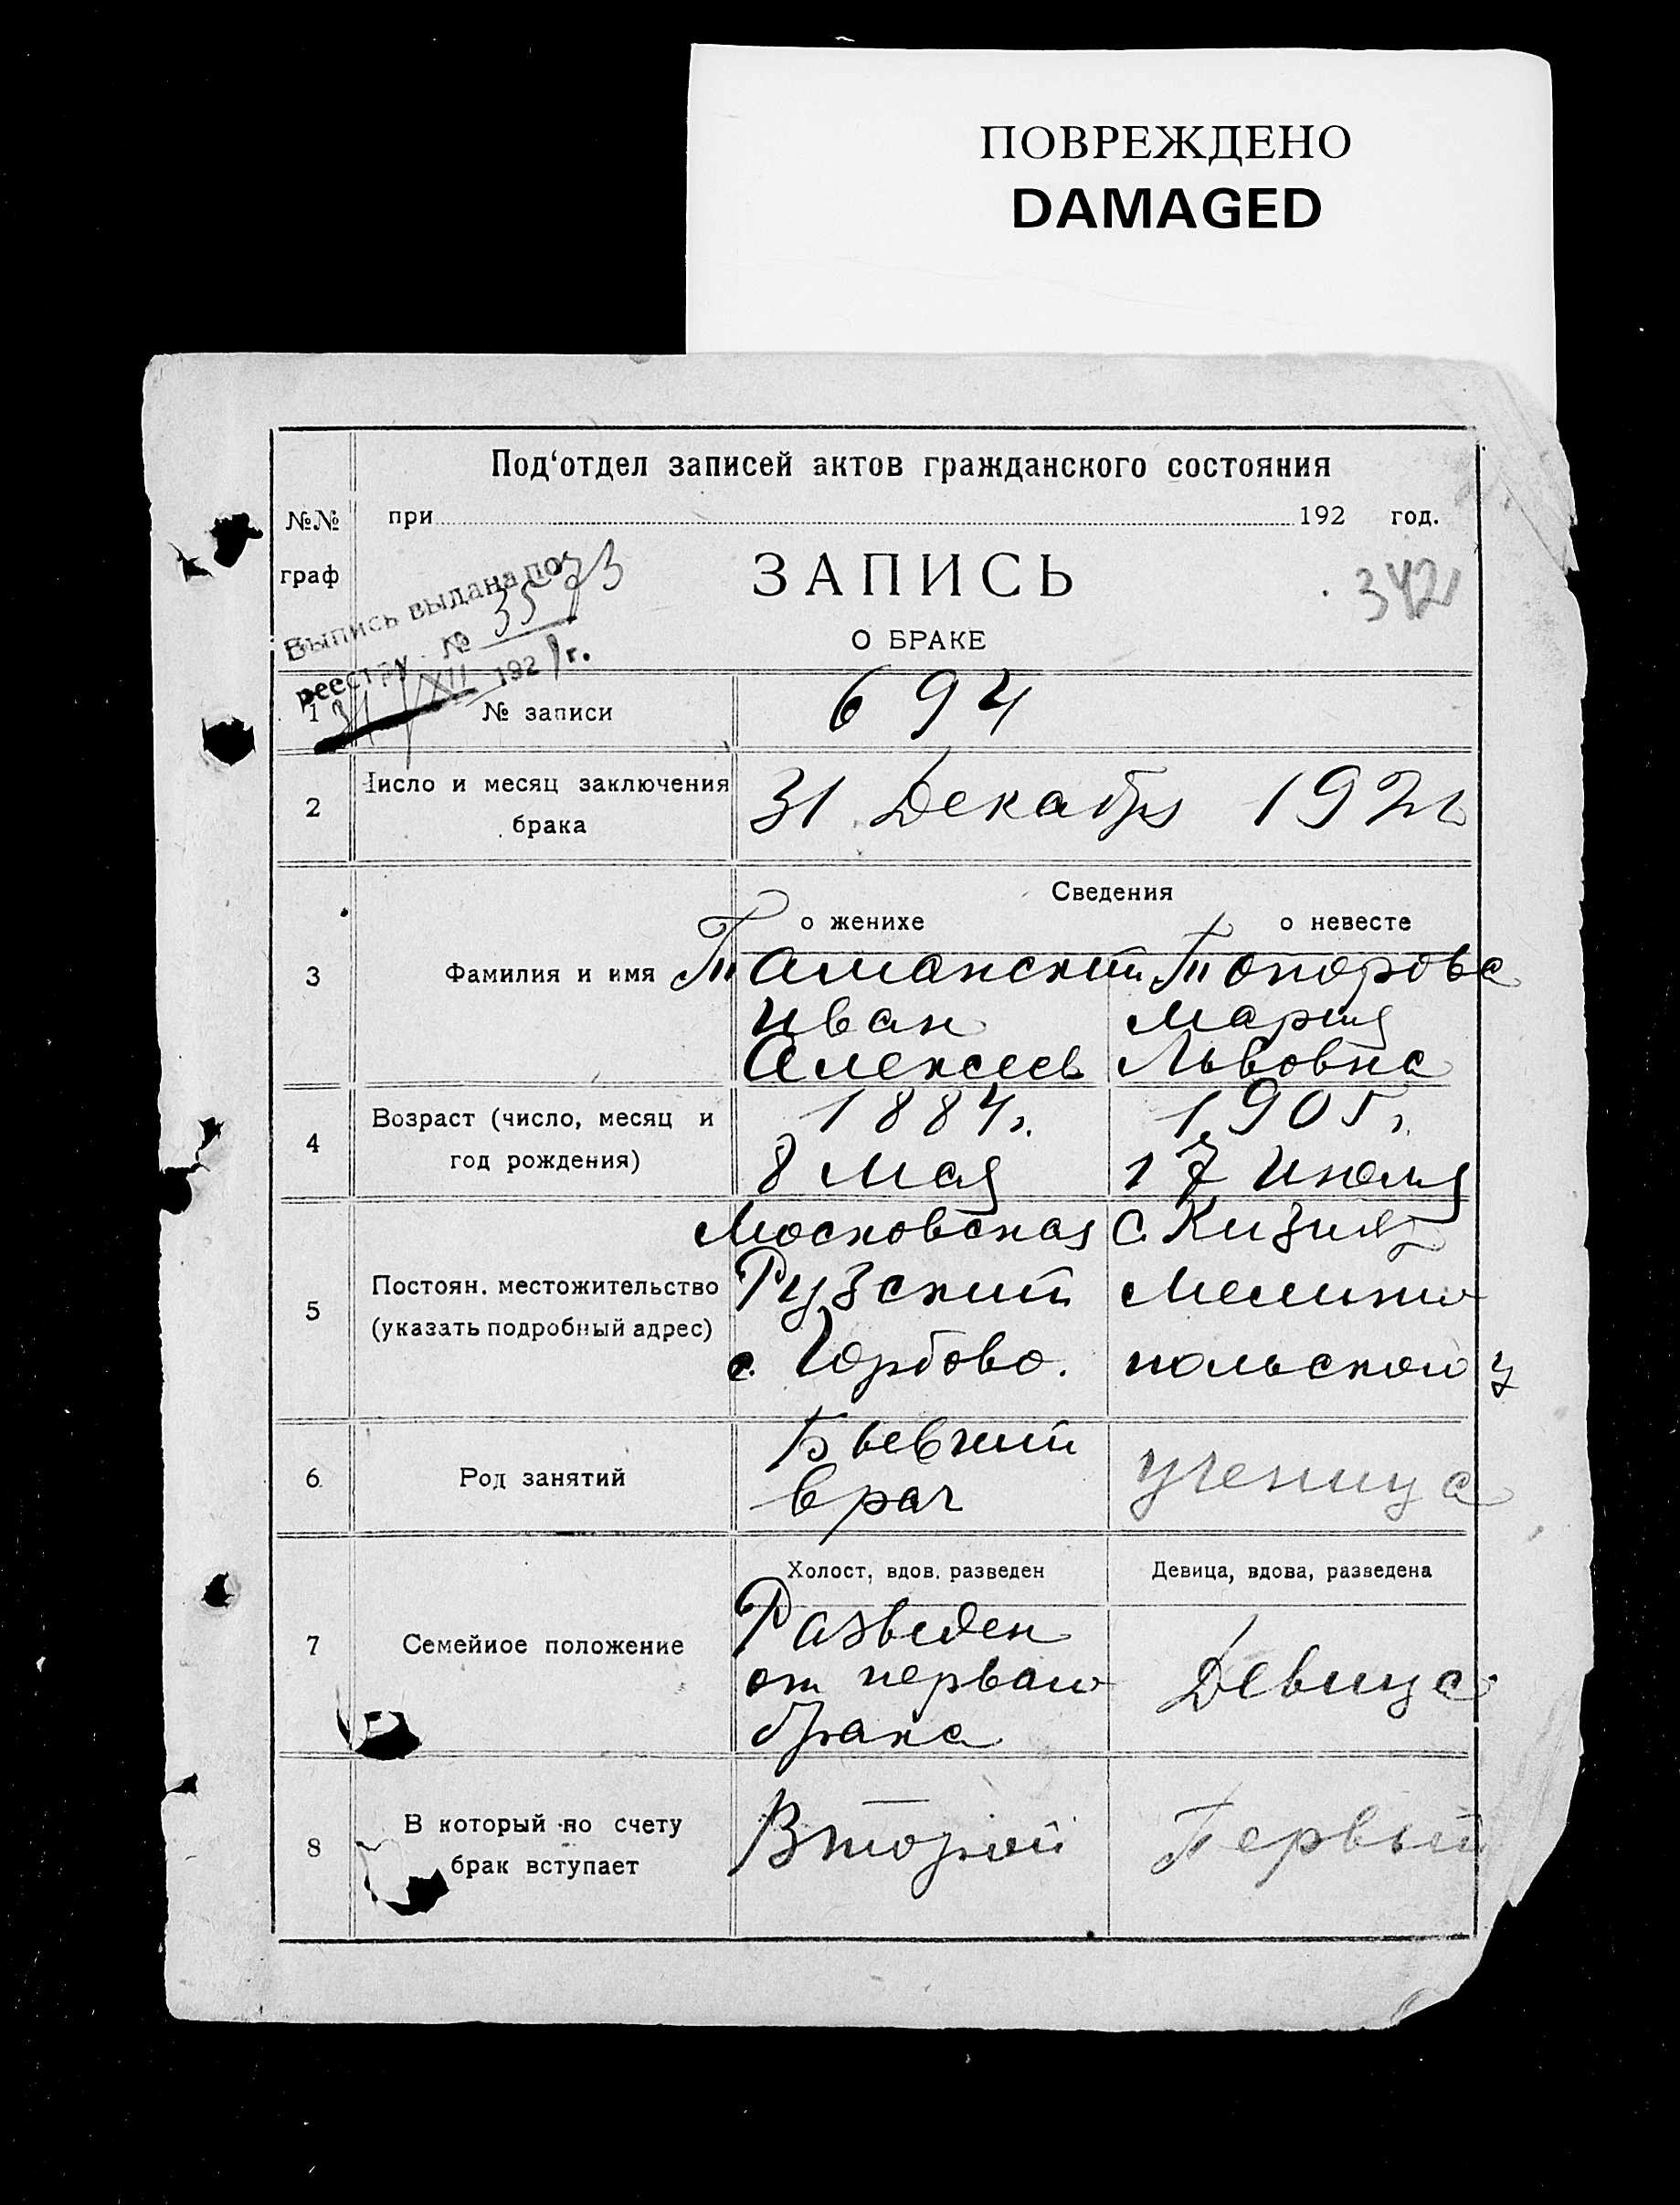 ПОВРЕЖДЕНО
DAMAGED
Под‘отдел записей актов гражданского состояния
№№
граф
при 192 год.
ЗАПИСЬ
О БРАКЕ
342
Выпись выдана по
реестру № 3573
31/XII 1921 г.
1 № записи 694
2 Число и месяц заключения
брака
31 Декабр 1921
Сведения
о женихе о невесте
3 Фамилия и имя
Таманский Топорова
Иван Мария
Алексеев Львовна
4 Возраст (число, месяц и
год рождения)
1884 г. 1905 г.
8 Мая 17 Июля
5 Постоян. местожительство
(указать подробный адрес)
Московская с.
Рузский Мелито
с. Горбово. польского у
6 Род занятий
врач ученица
Холост, вдов, разведен Девица, вдова, разведена
7 Семейное положение
Разведен
от первого Девица
брака
8 В который по счету
брак вступает
Второй Первый